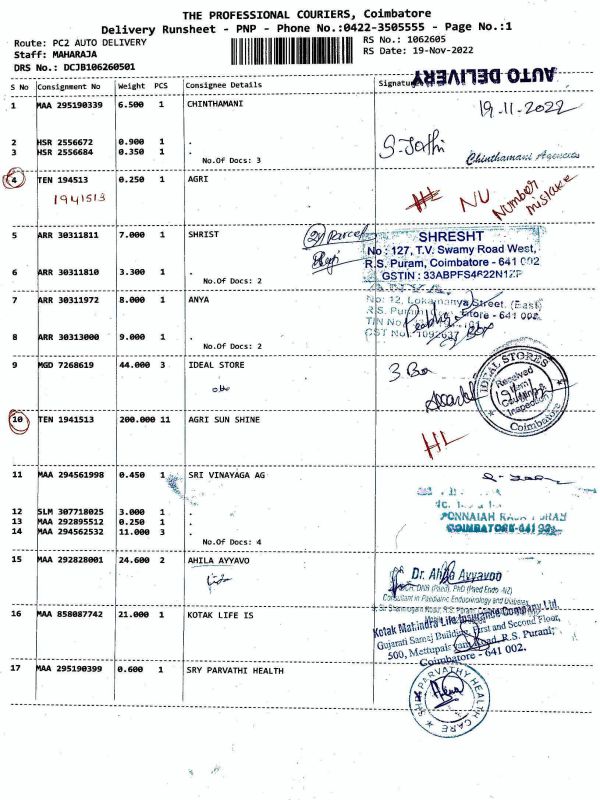 THE PROFESSIONAL COURIERS, Coimbatore
Delivery Runsheet - PNP - Phone No.:0422-3505555 - Page No.:1
Route: PC2 AUTO DELIVERY
Staff: MAHARAJA
DRS No.: DCJB106260501
RS No.: 1062605
RS Date: 19-Nov-2022
AUTO DELIVERY
S No Consignment No Weight PCS Consignee Details Signature
1 MAA 295190339 6.500 1 CHINTHAMANI
19.11.2022
2 HSR 2556672 0.900 1 .
3 HSR 2556684 0.350 1 .
No.Of Docs: 3
Chinthamani Agencies
4 TEN 194513 0.250 1 AGRI
1941513
NU
Number
mistake
5 ARR 30311811 7.000 1 SHRIST
(2) Parcel
SHRESHT
No : 127, T.V. Swamy Road West,
R.S. Puram, Coimbatore - 641 002
GSTIN : 33ABPFS4622N1ZP
6 ARR 30311810 3.300 1 .
No.Of Docs: 2
7 ARR 30311972 8.000 1 ANYA
ANYA
No: 12, Lokamanya Street, (East)
R.S. Puram
- 641 002.
8 ARR 30313000 9.000 1 .
No.Of Docs: 2
9 MGD 7268619 44.000 3 IDEAL STORE
3 Box
IDEAL STORES
Received
Inspection
Coimbatore
10 TEN 1941513 200.000 11 AGRI SUN SHINE
HL
11 MAA 294561998 0.450 1 SRI VINAYAGA AG
12 SLM 307718025 3.000 1 .
13 MAA 292895512 0.250 1 .
14 MAA 294562532 11.000 3 .
No.Of Docs: 4
PONNAIAH RAJA PURAM
COIMBATORE-641
15 MAA 292828001 24.600 2 AHILA AYYAVO
Dr. Ahila Ayyavoo
Consultant in Paediatric Endocrinology and Diabetes
16 MAA 858087742 21.000 1 KOTAK LIFE IS
Kotak Mahindra Life Insurance Company Ltd.
Gujarati Samaj Building, First and Second Floor,
500, Mettupalayam Road, R.S. Puram,
Coimbatore - 641 002.
17 MAA 295190399 0.600 1 SRY PARVATHI HEALTH
PARVATHY HEALTH CARE